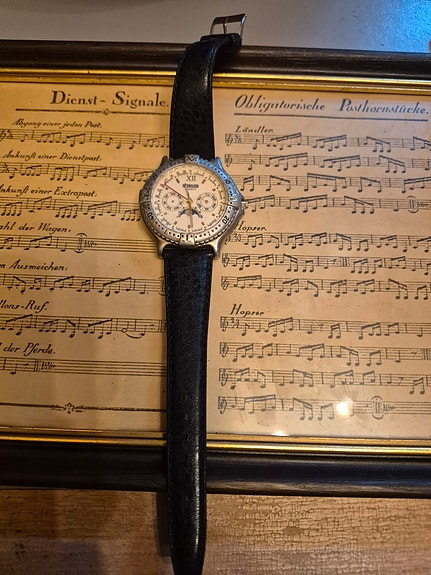 Dienst~Signale.
Abgang einer jeden Post.
Ankunft einer Dienstpost.
Ankunft einer Extrapost.
ahl der Wagen.
m Ausweichen.
llons-Ruf.
l der Pferde.
XII
Obligatorische Posthornstücke.
Ländler.
Hopser.
Hopser